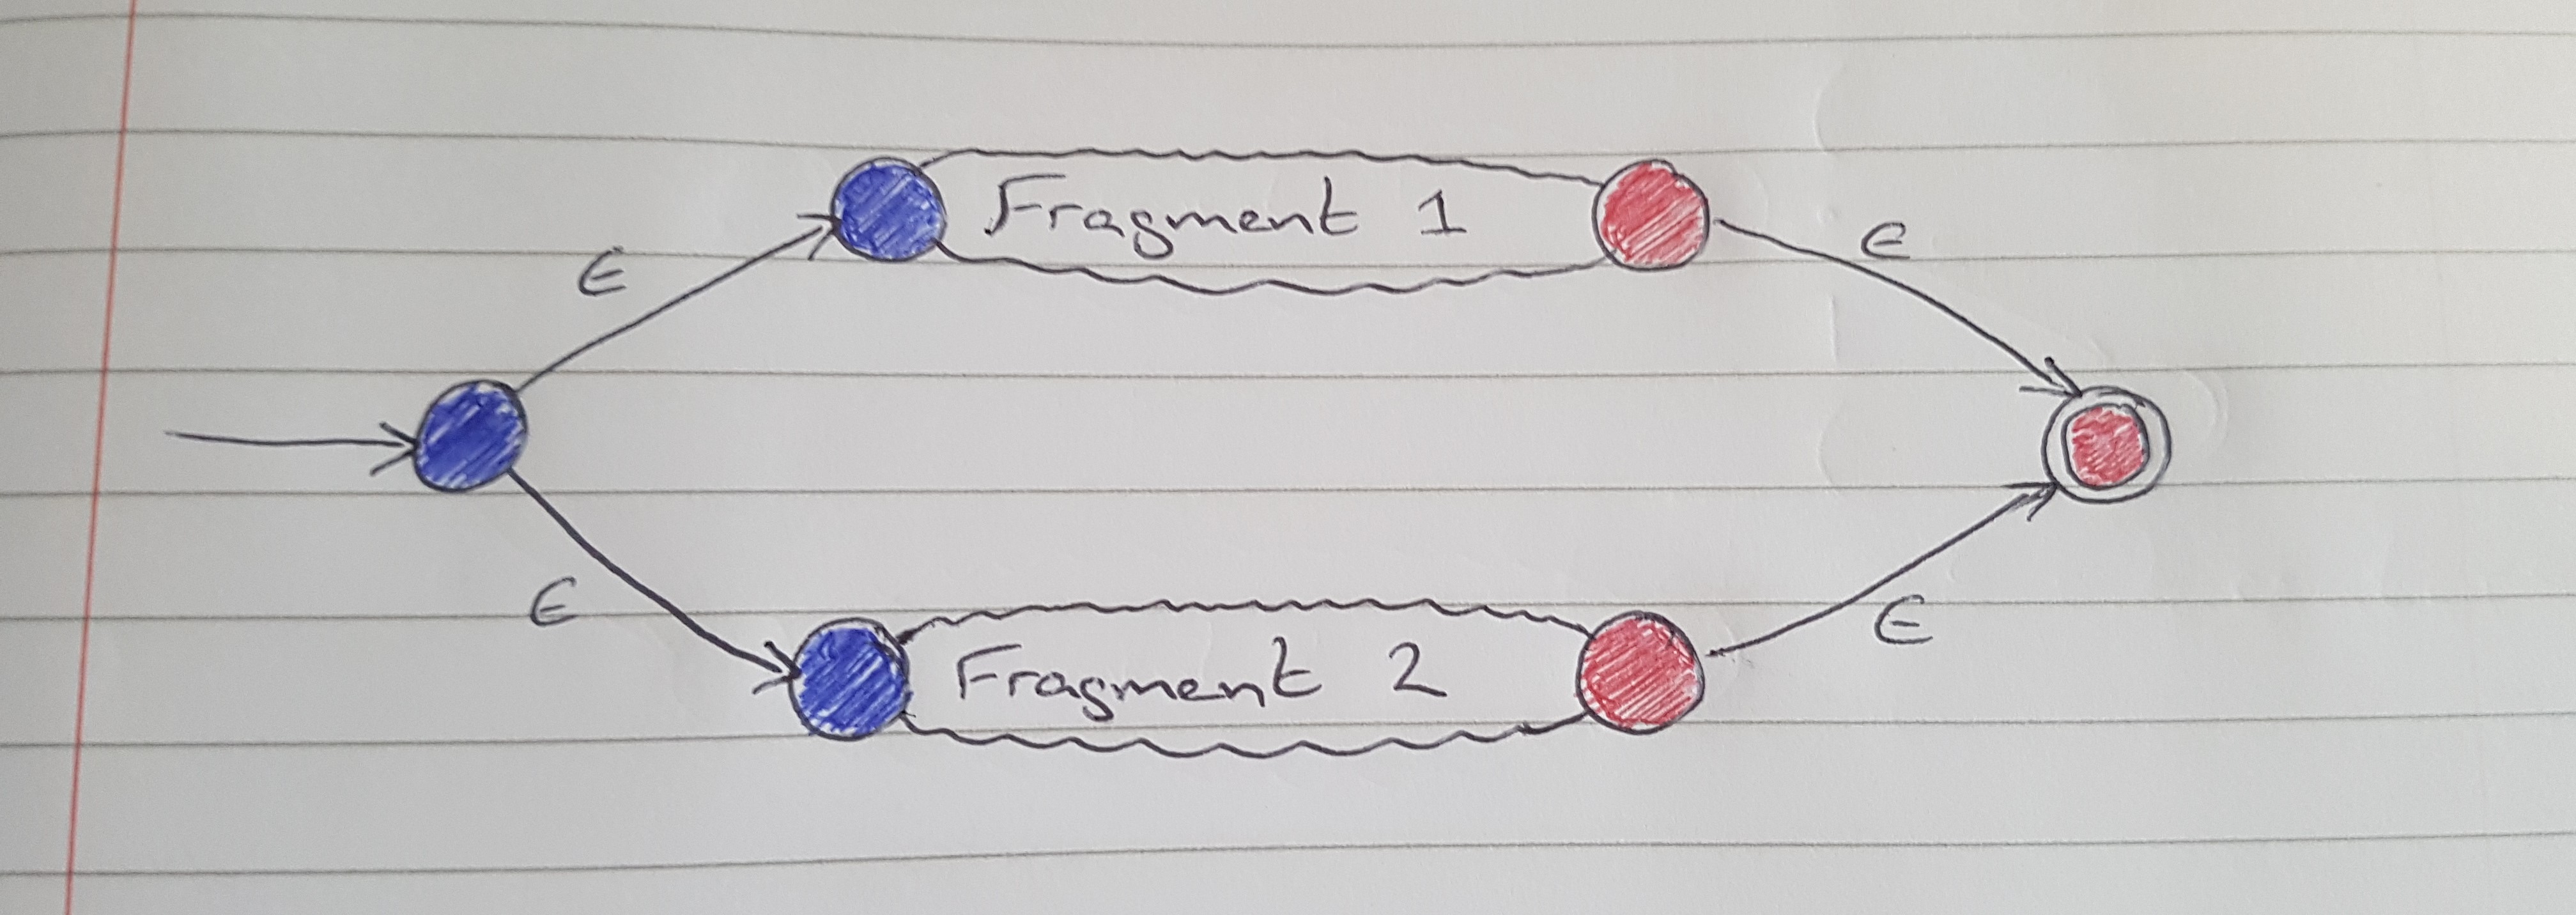 ϵ
Fragment 1
ϵ
ϵ
Fragment 2
ϵ